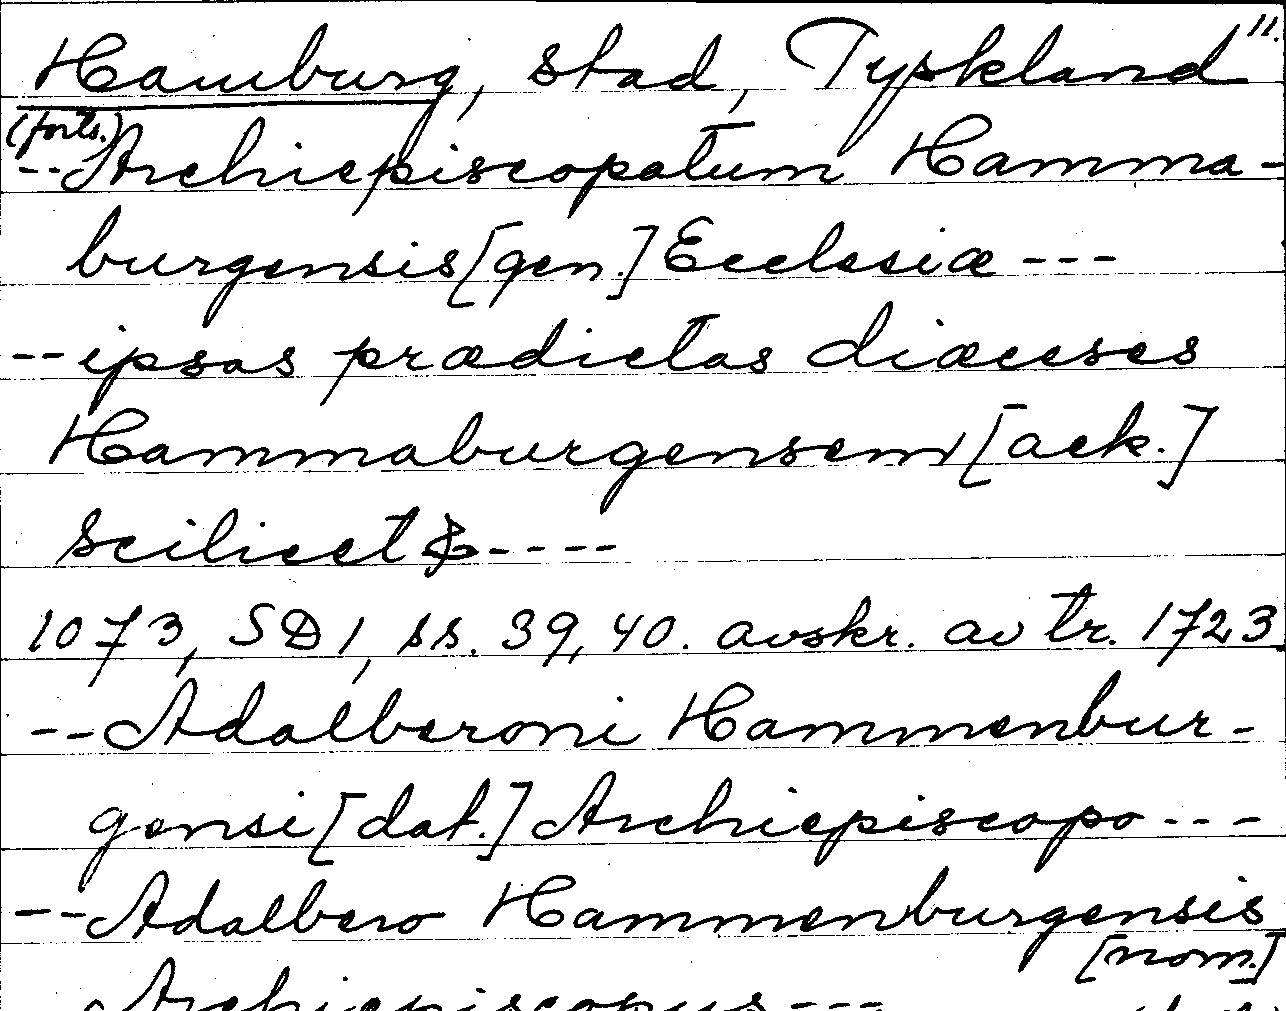 Hamburg, stad, Tyskland 11.
(forts.)
--Archiepiscopatum Hamma-
burgensis [gen.] Ecclesiæ ---
--ipsas prædictas diæceses
Hammaburgensem [ack.]
scilicet ----
1073, SD 1, ss. 39, 40. avskr. av tr. 1723.
--Adalberoni Hammenbur-
gensi [dat.] Archiepiscopo ---
---Adalbero Hammenburgensis
[nom.]
Archiepiscopus ---